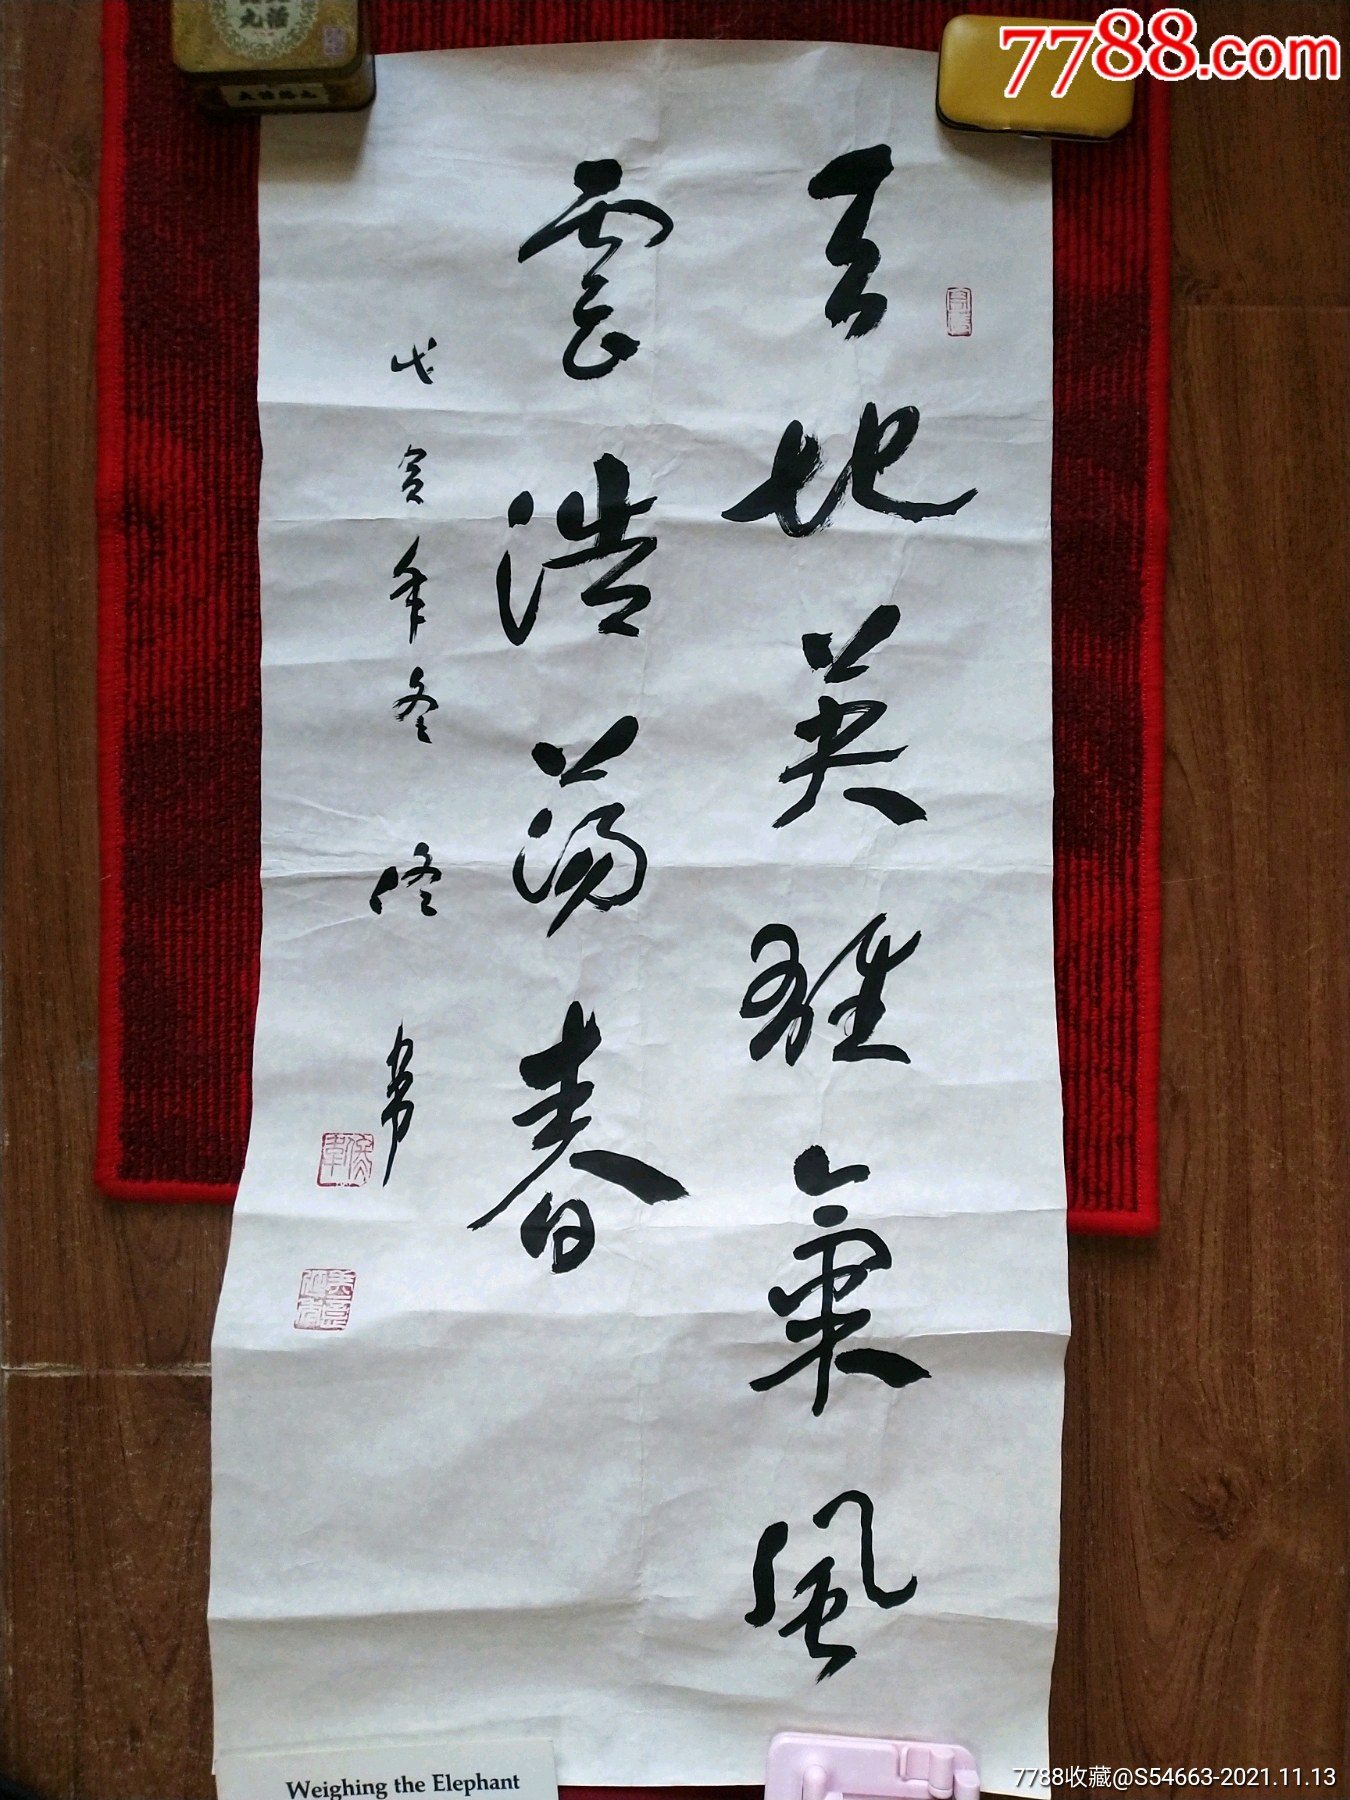 7788.com
天地英雄氣風
雲浩蕩春
戊寅年冬 佟韋
Weighing the Elephant
7788收藏@S54663-2021.11.13